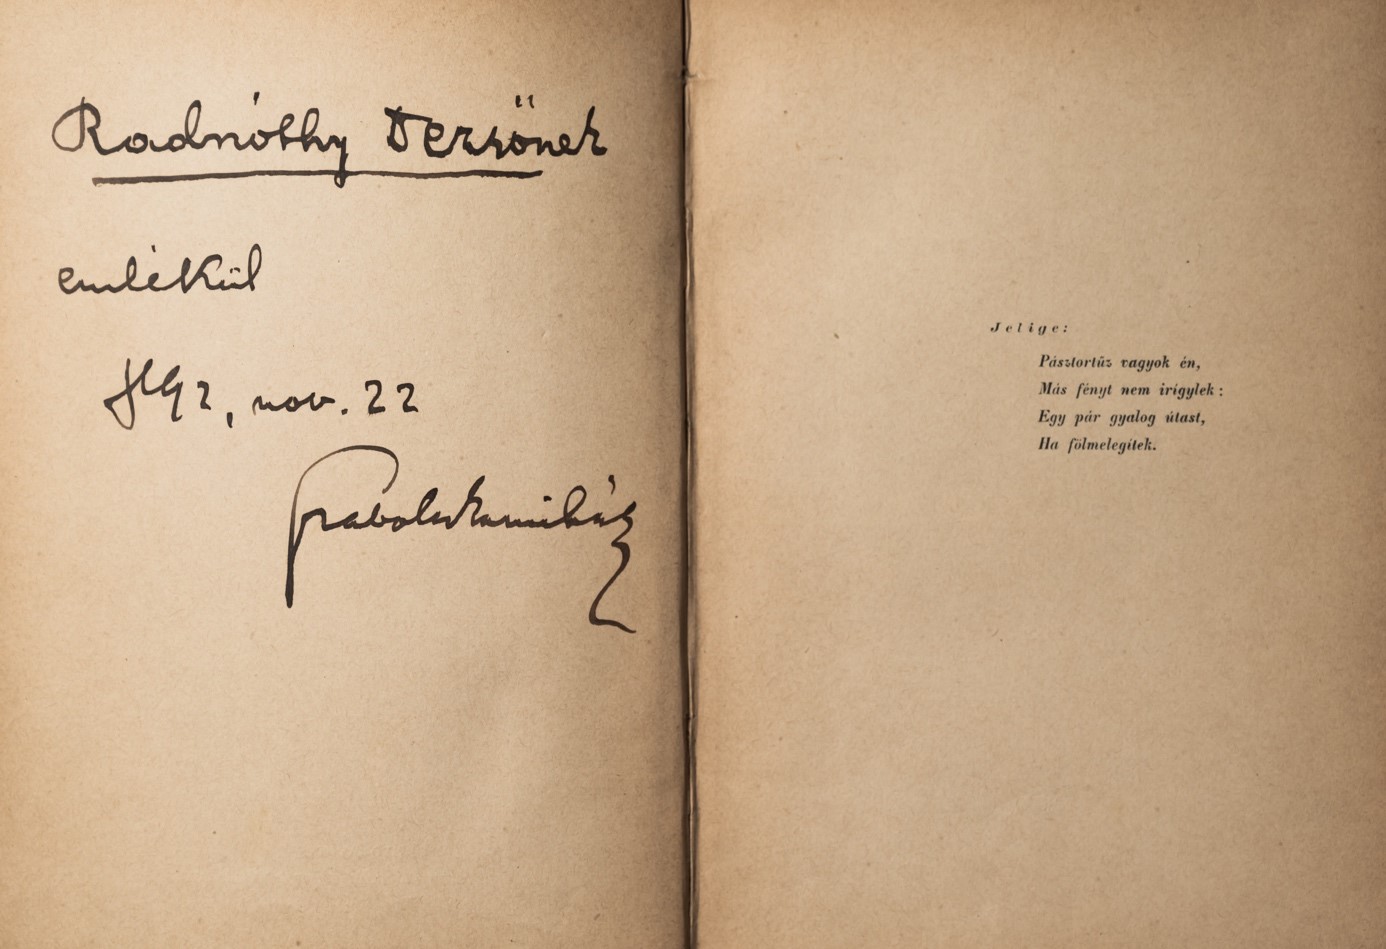 Radnóthy Dezsőnek
emlékül
nov. 22
Szabolcska Mihály
Jelige:
Pásztortűz vagyok én,
Más fényt nem irígylek :
Egy pár gyalog útast,
Ha fölmelegítek.